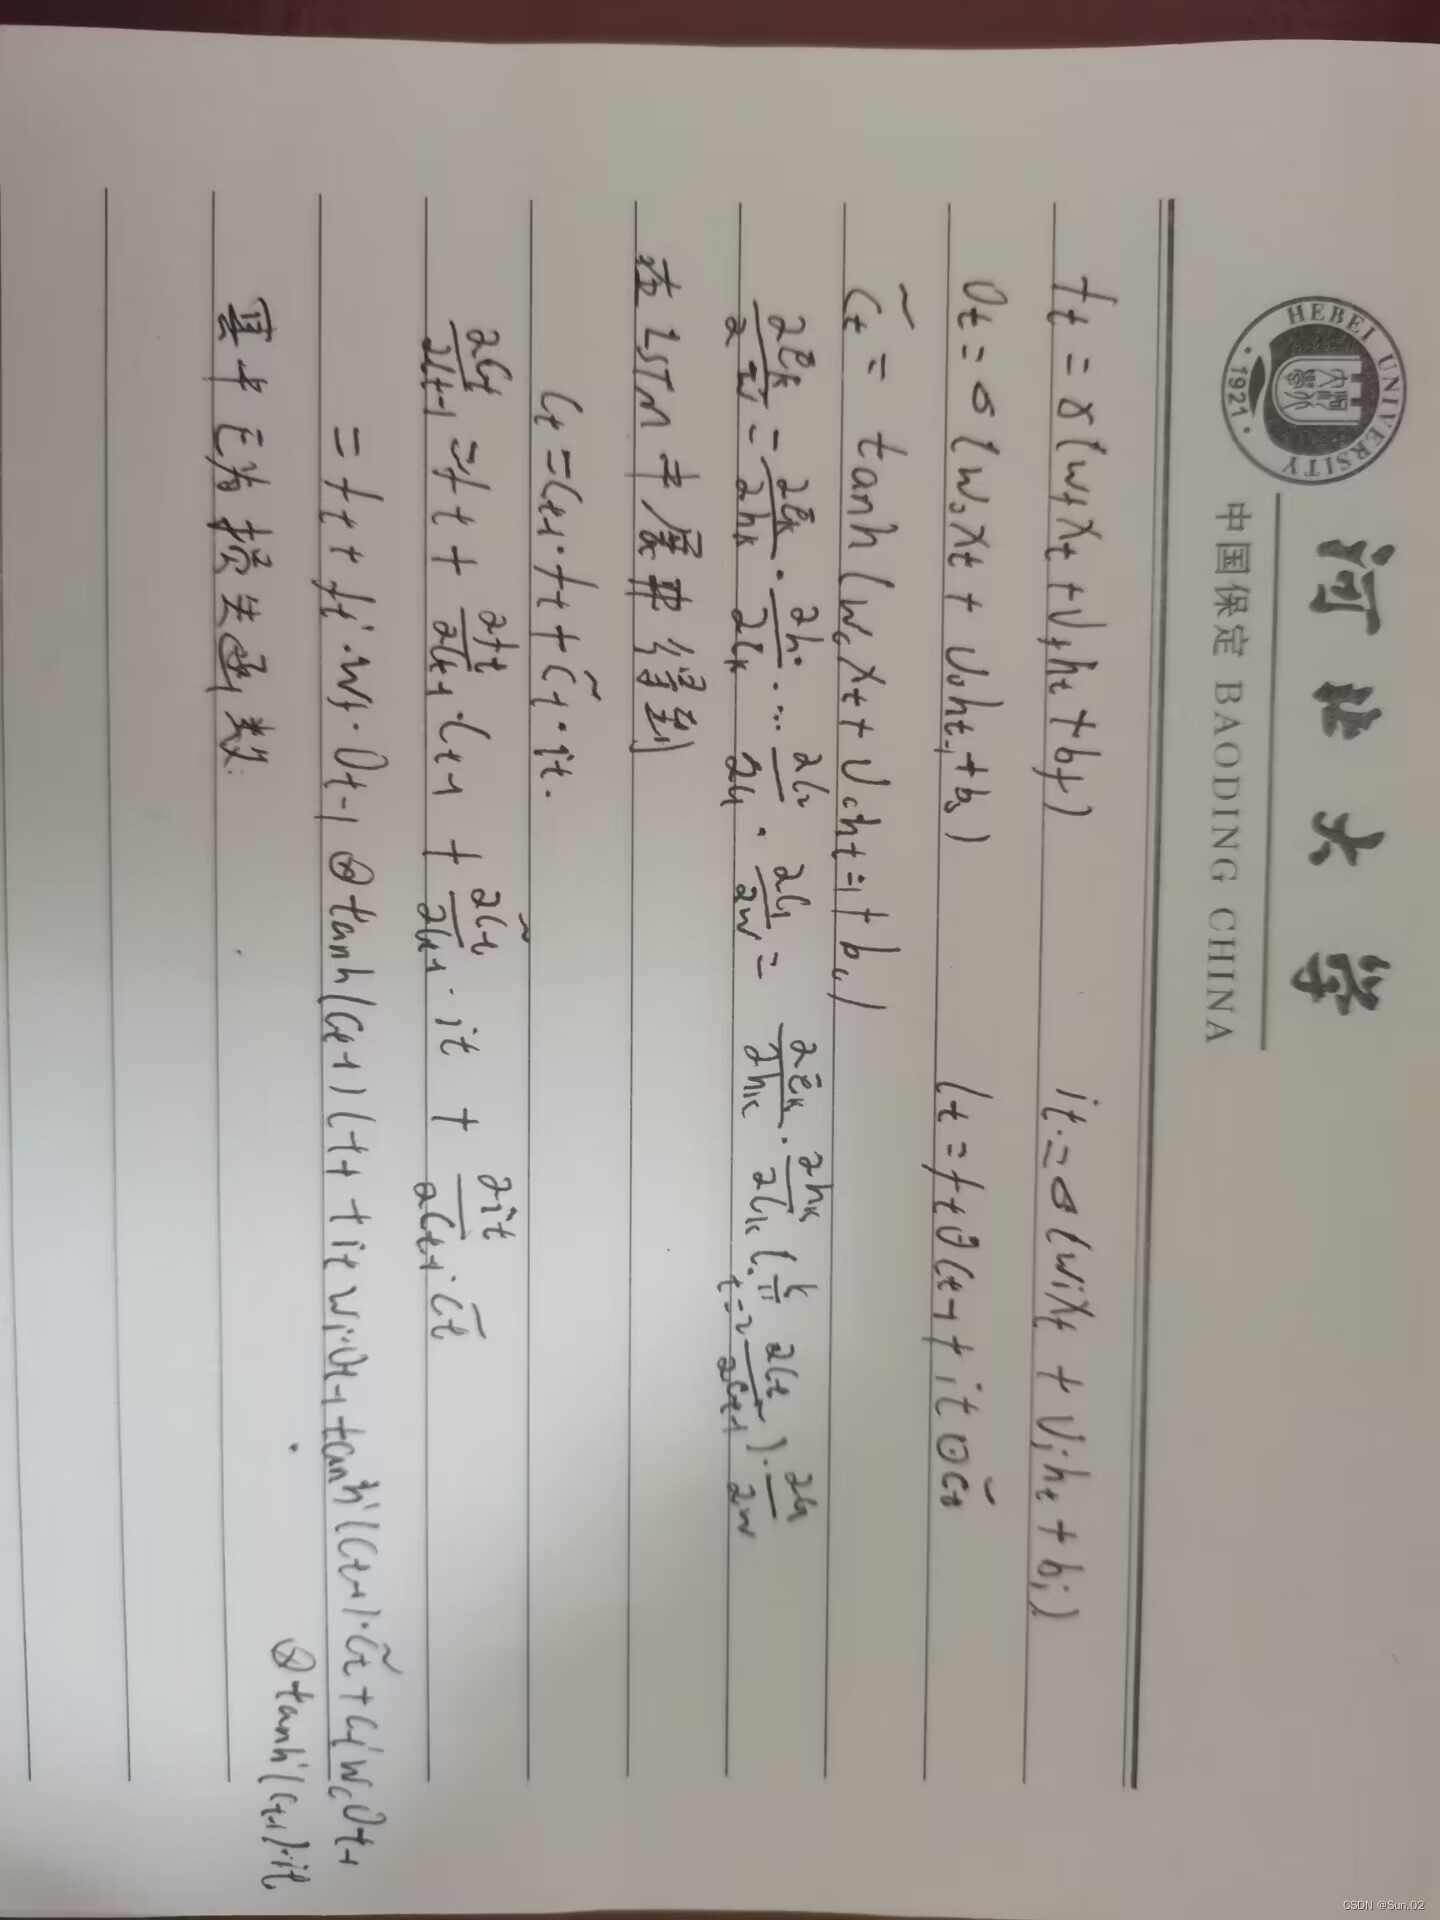 河北大学
中国保定 BAODING CHINA
HEBEI UNIVERSITY
·1921·
f_t = σ(W_f X_t + U_f h_t + b_f) i_t = σ(W_i X_t + U_i h_t + b_i)
O_t = σ(W_o X_t + U_o h_{t-1} + b_o) C_t = f_t ⊙ C_{t-1} + i_t ⊙ C̃_t
C̃_t = tanh(W_c X_t + U_c h_{t-1} + b_c)
∂E_k/∂W = ∂E_k/∂h_k · ∂h_k/∂C_k ··· ∂C_2/∂C_1 · ∂C_1/∂W = ∂E_k/∂h_k · ∂h_k/∂C_k (∏_{t=2}^{k} ∂C_t/∂C_{t-1}) · ∂C_1/∂W
在LSTM中展开得到
C_t = C_{t-1} · f_t + C̃_t · i_t.
∂C_t/∂C_{t-1} = f_t + ∂f_t/∂C_{t-1} · C_{t-1} + ∂C̃_t/∂C_{t-1} · i_t + ∂i_t/∂C_{t-1} · C̃_t
= f_t + f_t' · W_f · O_{t-1} ⊗ tanh'(C_{t-1}) C_{t-1} + i_t' W_i · O_{t-1} tanh'(C_{t-1}) · C̃_t + C̃_t' W_c O_{t-1}
⊗ tanh'(C_{t-1}) · i_t
其中E为损失函数.
CSDN @Sun.02